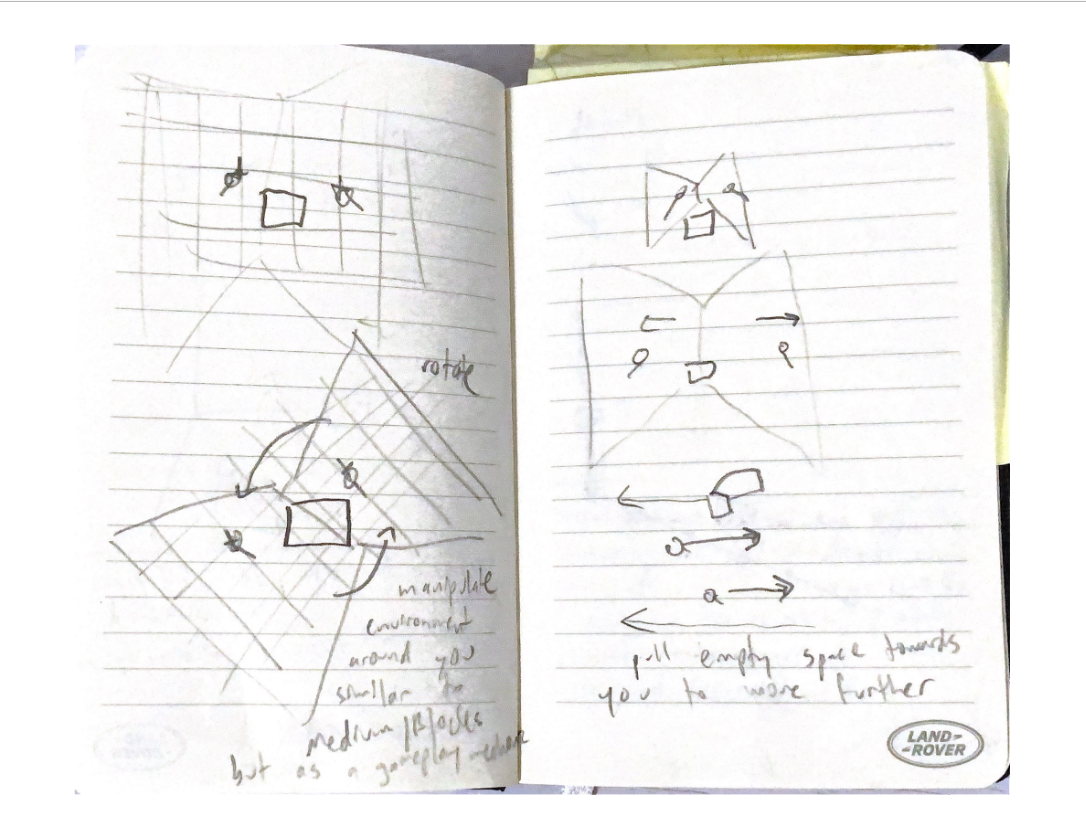 rotate
manipulate
environment
around you
similar to
medium / Blocks
but as a gameplay mechanic
pull empty space towards
you to move further
LAND-
-ROVER